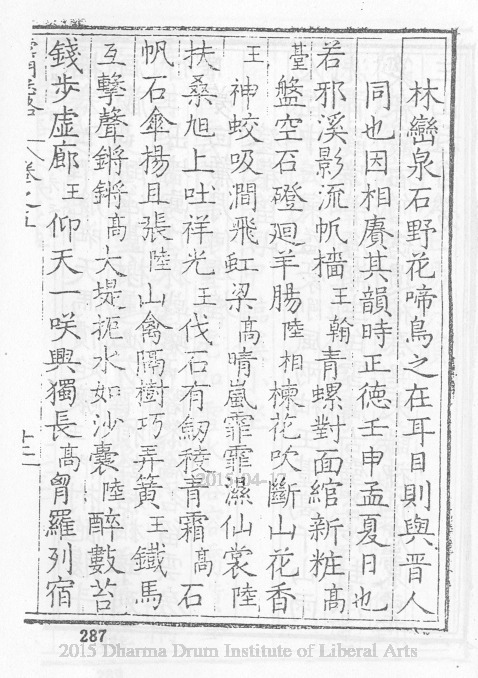 林巒泉石野花啼鳥之在耳目則與晋人
同也因相賡其韻時正徳壬申孟夏日也
若邪溪影流帆檣王翰青螺對面綰新粧高
臺盤空石磴廻羊腸陸相楝花吹斷山花香
王神蛟吸澗飛虹梁高晴嵐霏霏濕仙裳陸
扶桑旭上吐祥光王伐石有劒稜青霜高石
帆石傘揚且張陸山禽隔樹巧弄簧王鐵馬
互擊聲鏘鏘高大堤扼水如沙囊陸醉數苔
錢步虛廊王仰天一咲興獨長高胷羅列宿
雲門志略 卷之五
十二
287
2015-04-
2015 Dharma Drum Institute of Liberal Arts